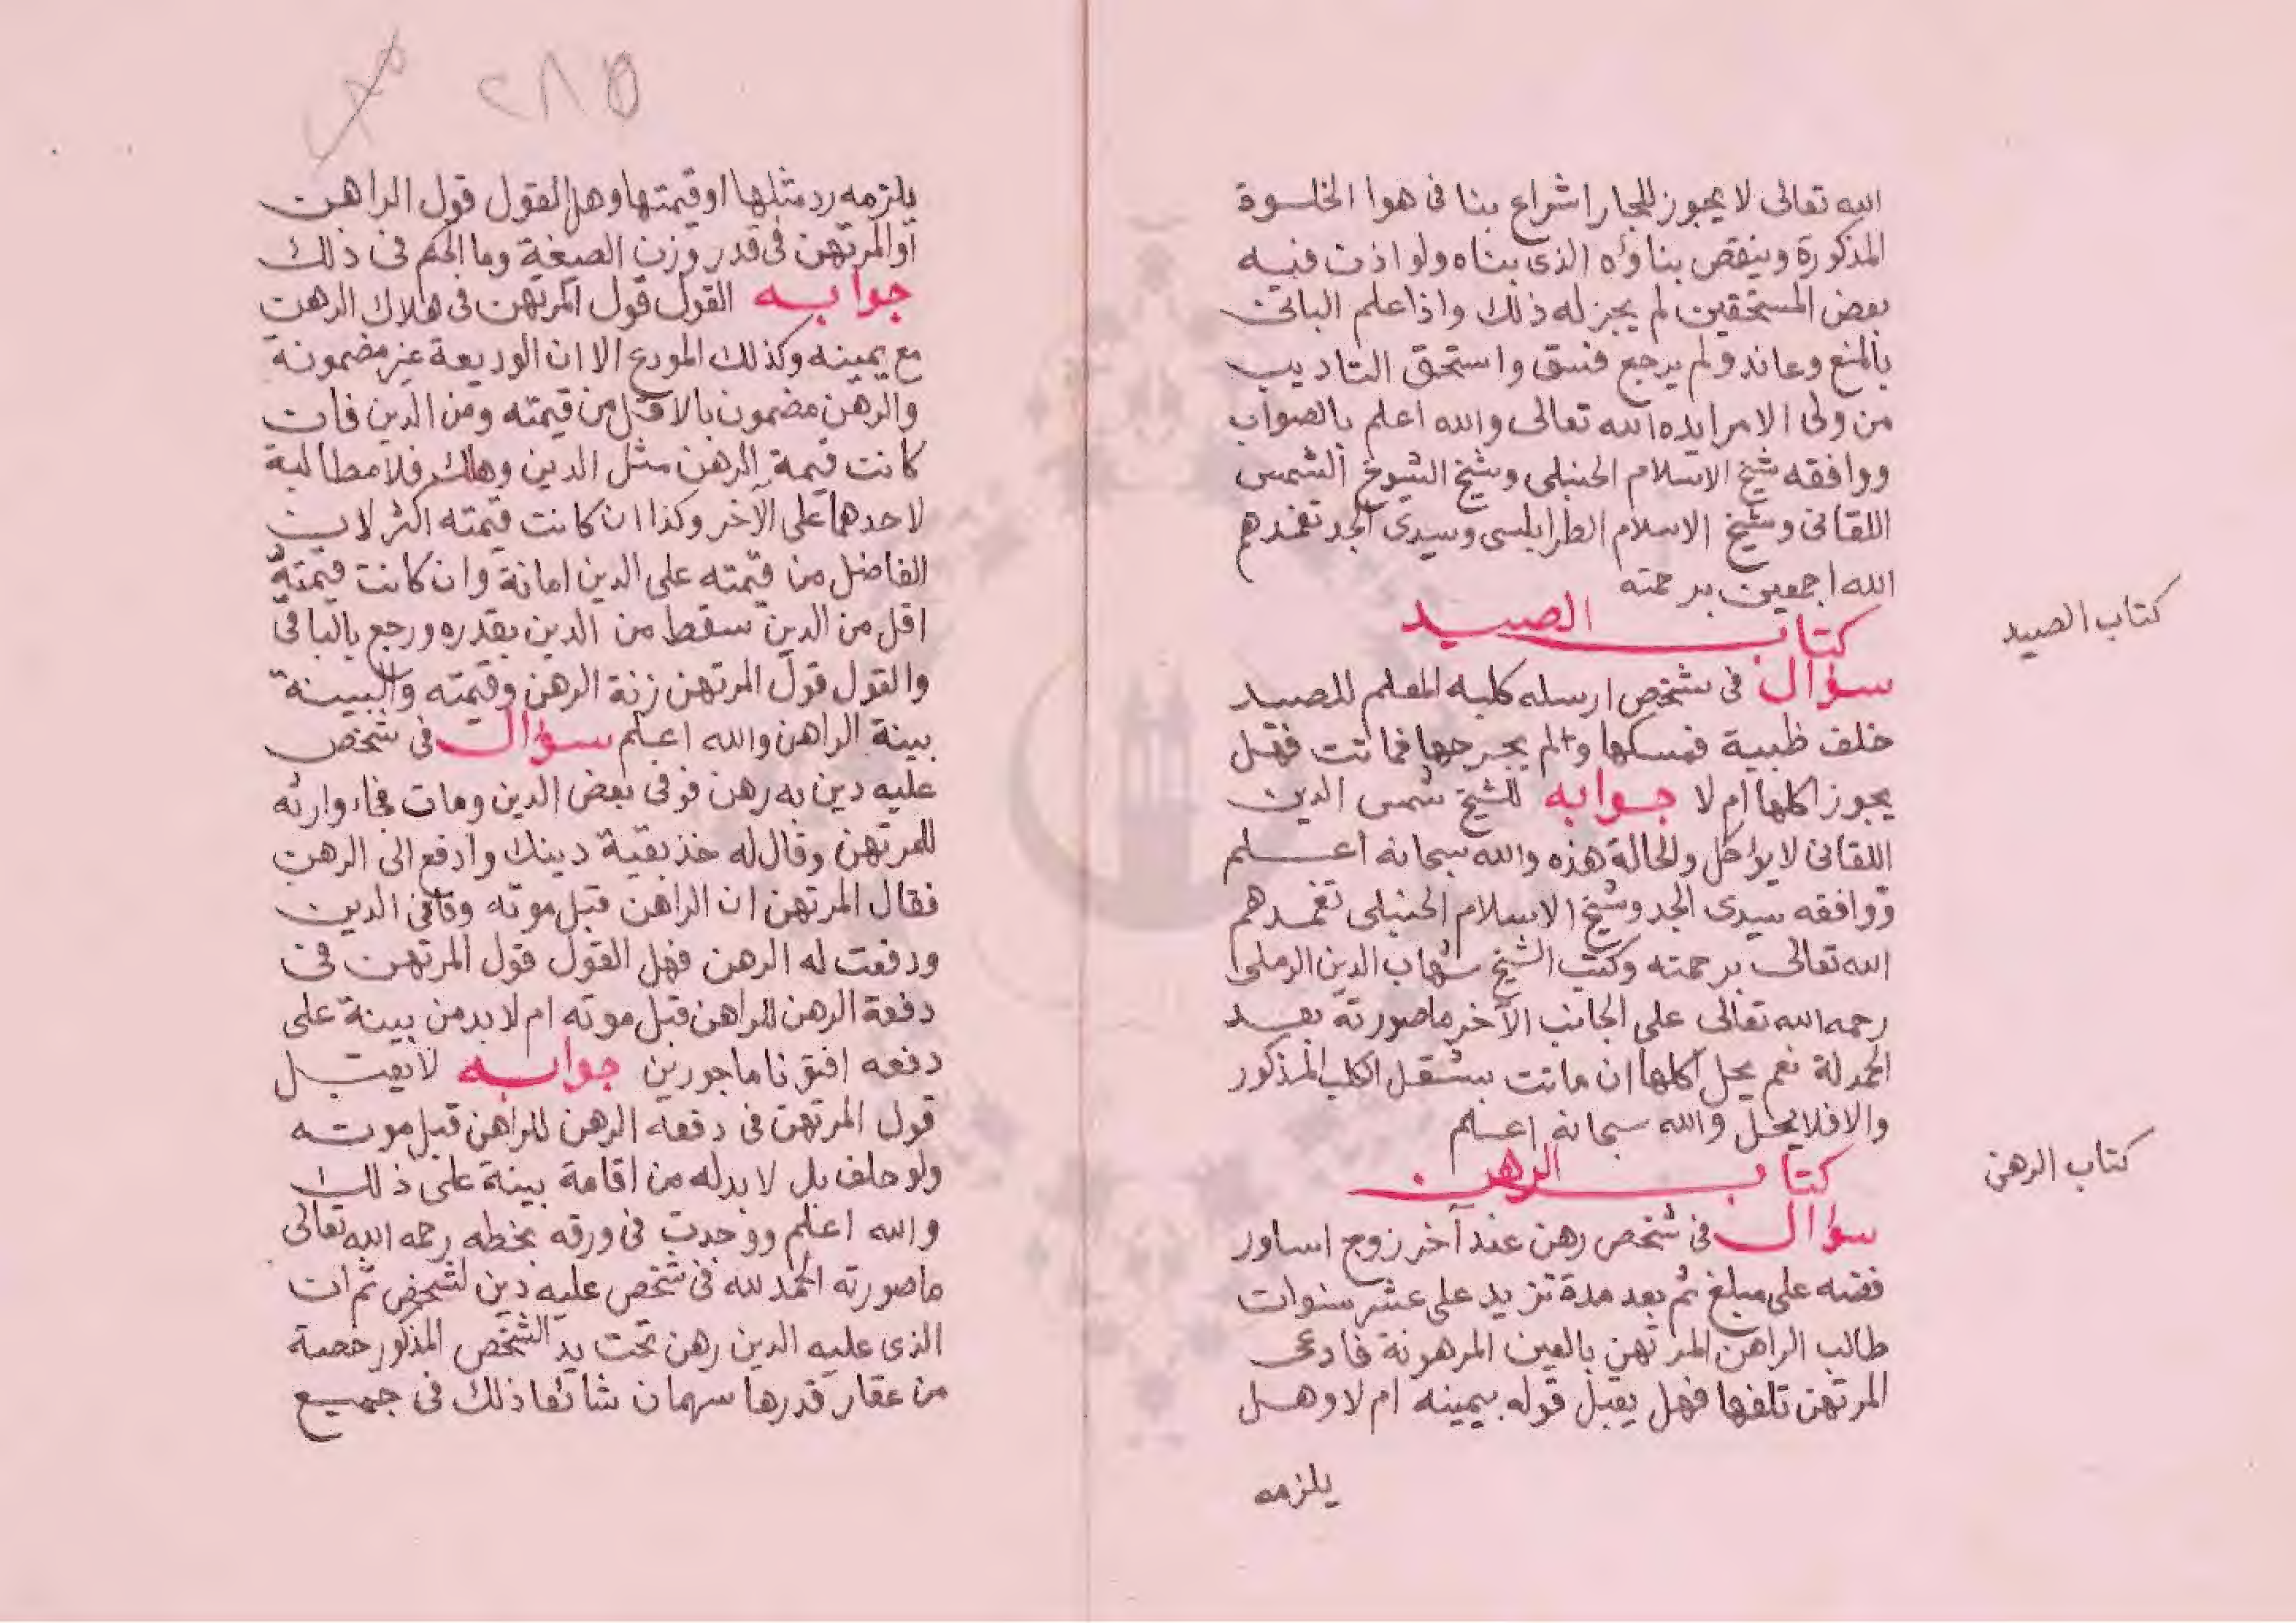 الله تعالى لا يجوز للجار اشراع بنا فى هوا الخلوة
المذكورة وينقض بناؤه الذى بناه ولو اذن فيه
بعض المستحقين لم يجز له ذلك واذا علم البانى
بالمنع وعاند ولم يرجع فسق واستحق التاديب
من ولى الامر ايده الله تعالى والله اعلم بالصواب
ووافقه شيخ الاسلام الحنبلى وشيخ الشيوخ الشمس
اللقانى وشيخ الاسلام الطرابلسى وسيدى الجد تغمدهم
الله اجمعين برحمته
كتاب الصيد
كتاب الصيد
سؤال فى شخص ارسله كلبه المعلم للصيد
خلف ظبية فمسكها ولم يجرحها فماتت فهل
يجوز اكلها ام لا جوابه للشيخ شمس الدين
اللقانى لا يؤكل والحالة هذه والله سبحانه اعلم
ووافقه سيدى الجد وشيخ الاسلام الحنبلى تغمدهم
الله تعالى برحمته وكتب الشيخ شهاب الدين الرملى
رحمه الله تعالى على الجانب الآخر ما صورته بعد
الحمدلة نعم يحل اكلها ان ماتت بثقل الكلب المذكور
والا فلا يحل والله سبحانه اعلم
كتاب الرهن
كتاب الرهن
سؤال فى شخص رهن عند آخر زوج اساور
فضه على مبلغ ثم بعد مدة تزيد على عشر سنوات
طالب الراهن المرتهن بالعين المرهونة فادعى
المرتهن تلفها فهل يقبل قوله بيمينه ام لا وهل
يلزمه
٢٨٥
يلزمه رد مثلها او قيمتها وهل القول قول الراهن
او المرتهن فى قدر وزن الصيغة وما الحكم فى ذلك
جوابه القول قول المرتهن فى هلاك الرهن
مع يمينه وكذلك المودع الا ان الوديعة غير مضمونة
والرهن مضمون بالاقل من قيمته ومن الدين فان
كانت قيمة الرهن مثل الدين وهلك فلا مطالبة
لاحدهما على الآخر وكذا ان كانت قيمته اكثر لان
الفاضل من قيمته على الدين امانة وان كانت قيمته
اقل من الدين سقط من الدين بقدره ورجع بالباقى
والقول قول المرتهن زنة الرهن وقيمته والبينة
بينة الراهن والله اعلم سؤال فى شخص
عليه دين به رهن فوفى بعض الدين ومات فجاء وارثه
للمرتهن وقال له خذ بقية دينك وادفع الى الرهن
فقال المرتهن ان الراهن قبل موته وفانى الدين
ودفعت له الرهن فهل القول قول المرتهن فى
دفعة الرهن للراهن قبل موته ام لا بد من بينة على
دفعه افتونا ماجورين جوابه لا يقبل
قول المرتهن فى دفعه الرهن للراهن قبل موته
ولو حلف بل لا بد له من اقامة بينة على ذلك
والله اعلم ووجدت فى ورقه بخطه رحمه الله تعالى
ما صورته الحمد لله فى شخص عليه دين لشخص ثم ان
الذى عليه الدين رهن تحت يد الشخص المذكور حصة
من عقار قدرها سهمان شائعا ذلك فى جميع